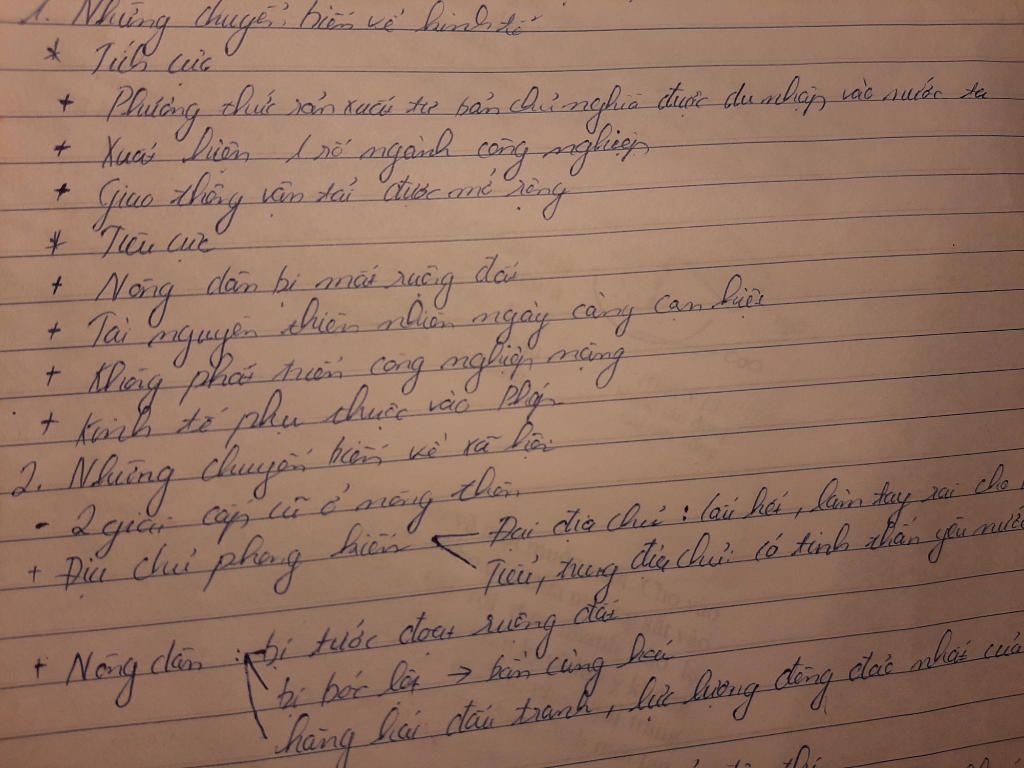 1. Những chuyển biến về kinh tế
* Tích cực
+ Phương thức sản xuất tư bản chủ nghĩa được du nhập vào nước ta
+ Xuất hiện 1 số ngành công nghiệp
+ Giao thông vận tải được mở rộng
* Tiêu cực
+ Nông dân bị mất ruộng đất
+ Tài nguyên thiên nhiên ngày càng cạn kiệt
+ Không phát triển công nghiệp nặng
+ Kinh tế phụ thuộc vào Pháp
2. Những chuyển biến về xã hội
- 2 giai cấp cũ ở nông thôn
+ Địa chủ phong kiến
Đại địa chủ: câu kết, làm tay sai cho
Tiểu, trung địa chủ: có tinh thần yêu nước
+ Nông dân: bị tước đoạt ruộng đất
bị bóc lột → bần cùng hoá
hăng hái đấu tranh, lực lượng đông đảo nhất của